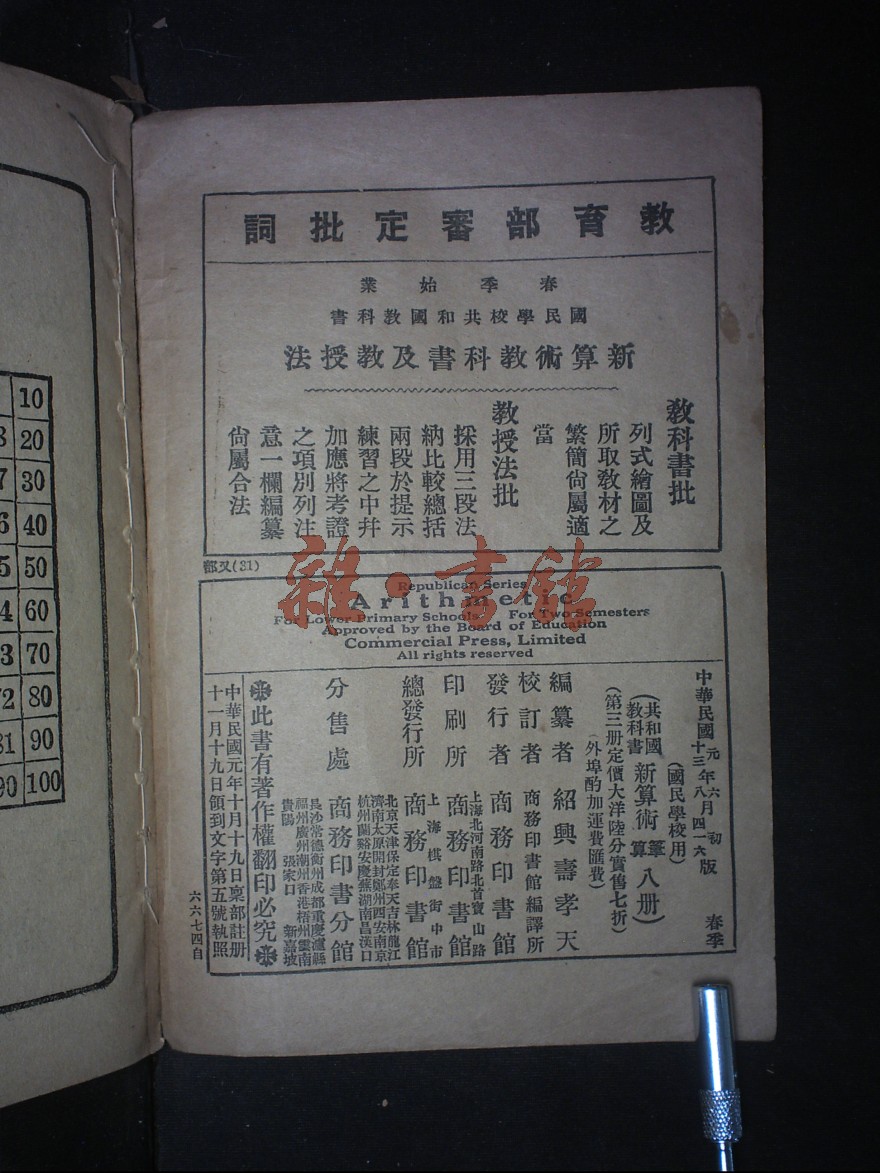 教育部審定批詞
春季始業
國民學校共和國教科書
新算術教科書及教授法
教科書批
列式繪圖及
所取教材之
繁簡尙屬適
當
教授法批
採用三段法
納比較總括
兩段於提示
練習之中幷
加應將考證
之項別列注
意一欄編纂
尙屬合法
(31)又部
Republican Series
Arithmetic
For Lower Primary Schools For Two Semesters
Approved by the Board of Education
Commercial Press, Limited
All rights reserved
中華民國
元年六月初
十三年八月四一六版
春季
(國民學校用)
(共和國教科書 新算術 筆算 八册)
(第三册定價大洋陸分實售七折)
(外埠酌加運費匯費)
編纂者 紹興壽孝天
校訂者 商務印書館編譯所
發行者 商務印書館
印刷所 上海北河南路北首寶山路 商務印書館
總發行所 上海棋盤街中市 商務印書館
分售處
北京天津保定奉天吉林龍江
濟南太原開封鄭州西安南京
杭州蘭谿安慶蕪湖南昌漢口
商務印書分館
長沙常德衡州成都重慶瀘縣
福州廣州潮州香港梧州雲南
貴陽 張家口 新嘉坡
此書有著作權翻印必究
中華民國元年十月十九日稟部註册
十一月十九日領到文字第五號執照
六六七四自
10
20
30
40
50
60
3 70
80
90
90 100
雜·書館